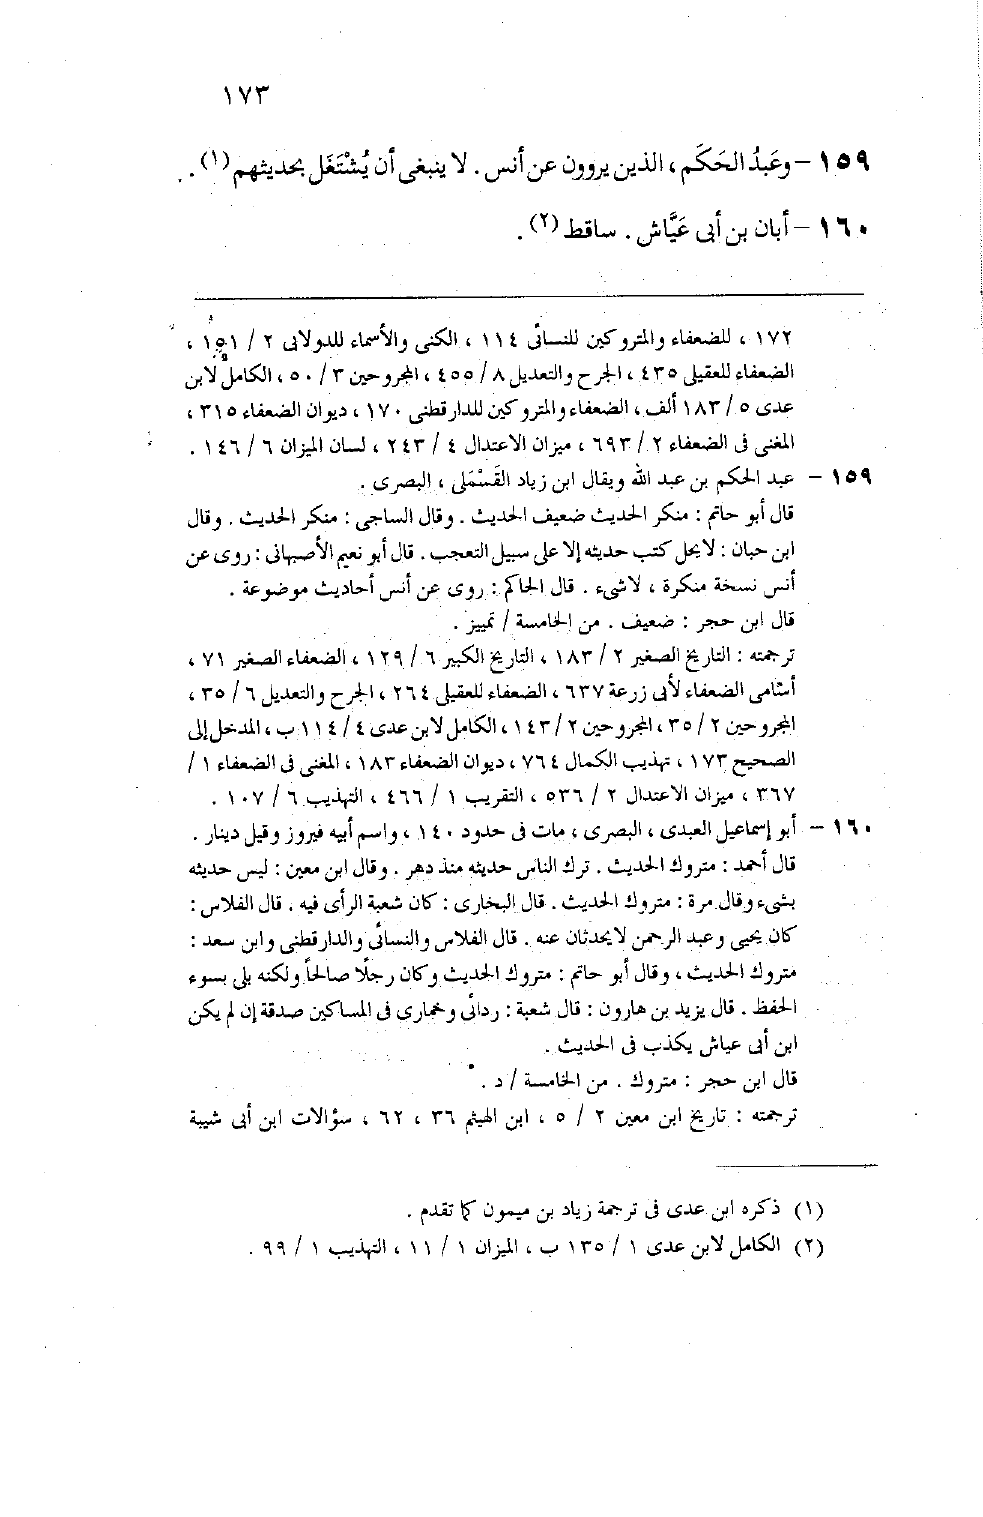 ١٧٣
١٥٩ – وعَبدُ الحَكَم ، الذين يروون عن أنس . لا ينبغى أن يُشْتَغَل بحديثهم (١) .
١٦٠ – أبان بن أبى عَيَّاش . ساقط (٢) .
١٧٢ ، للضعفاء والمتروكين للنسائى ١١٤ ، الكنى والأسماء للدولابى ٢ / ١٥١ ،
الضعفاء للعقيلى ٤٣٥ ، الجرح والتعديل ٨ / ٤٥٥ ، المجروحين ٣ / ٥٠ ، الكامل لابن
عدى ٥ / ١٨٣ ألف ، الضعفاء والمتروكين للدارقطنى ١٧٠ ، ديوان الضعفاء ٣١٥ ،
المغنى فى الضعفاء ٢ / ٦٩٣ ، ميزان الاعتدال ٤ / ٢٤٣ ، لسان الميزان ٦ / ١٤٦ .
١٥٩ – عبد الحكم بن عبد الله ويقال ابن زياد القَسْمَلى ، البصرى .
قال أبو حاتم : منكر الحديث ضعيف الحديث . وقال الساجى : منكر الحديث . وقال
ابن حبان : لايحل كتب حديثه إلا على سبيل التعجب . قال أبو نعيم الأصبهانى : روى عن
أنس نسخة منكرة ، لاشىء . قال الحاكم : روى عن أنس أحاديث موضوعة .
قال ابن حجر : ضعيف . من الخامسة / تمييز .
ترجمته : التاريخ الصغير ٢ / ١٨٣ ، التاريخ الكبير ٦ / ١٢٩ ، الضعفاء الصغير ٧١ ،
أسامى الضعفاء لأبى زرعة ٦٣٧ ، الضعفاء للعقيلى ٢٦٤ ، الجرح والتعديل ٦ / ٣٥ ،
المجروحين ٢ / ٣٥ ، المجروحين ٢ / ١٤٣ ، الكامل لابن عدى ٤ / ١١٤ ب ، المدخل إلى
الصحيح ١٧٣ ، تهذيب الكمال ٧٦٤ ، ديوان الضعفاء ١٨٣ ، المغنى فى الضعفاء ١ /
٣٦٧ ، ميزان الاعتدال ٢ / ٥٣٦ ، التقريب ١ / ٤٦٦ ، التهذيب ٦ / ١٠٧ .
١٦٠ – أبو إسماعيل العبدى ، البصرى ، مات فى حدود ١٤٠ ، واسم أبيه فيروز وقيل دينار .
قال أحمد : متروك الحديث . ترك الناس حديثه منذ دهر . وقال ابن معين : ليس حديثه
بشىء وقال مرة : متروك الحديث . قال البخارى : كان شعبة الرأى فيه . قال الفلاس :
كان يحيى وعبد الرحمن لايحدثان عنه . قال الفلاس والنسائى والدارقطنى وابن سعد :
متروك الحديث ، وقال أبو حاتم : متروك الحديث وكان رجلًا صالحاً ولكنه بلى بسوء
الحفظ . قال يزيد بن هارون : قال شعبة : ردائى وخمارى فى المساكين صدقة إن لم يكن
ابن أبى عياش يكذب فى الحديث .
قال ابن حجر : متروك . من الخامسة / د .
ترجمته : تاريخ ابن معين ٢ / ٥ ، ابن الهيثم ٣٦ ، ٦٢ ، سؤالات ابن أبى شيبة
(١) ذكره ابن عدى فى ترجمة زياد بن ميمون كما تقدم .
(٢) الكامل لابن عدى ١ / ١٣٥ ب ، الميزان ١ / ١١ ، التهذيب ١ / ٩٩ .